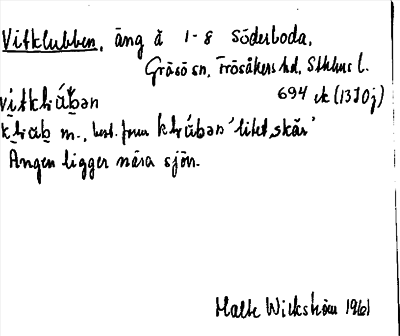 Vitklubben, äng å 1-8 Söderboda,
Gräsö sn, Frösåkers hd, Sthlms l.
694 ek (13I0j)
vitklúbən
klub m., best. form klúbən 'litet skär'
Ängen ligger nära sjön.
Malte Wickström 1961